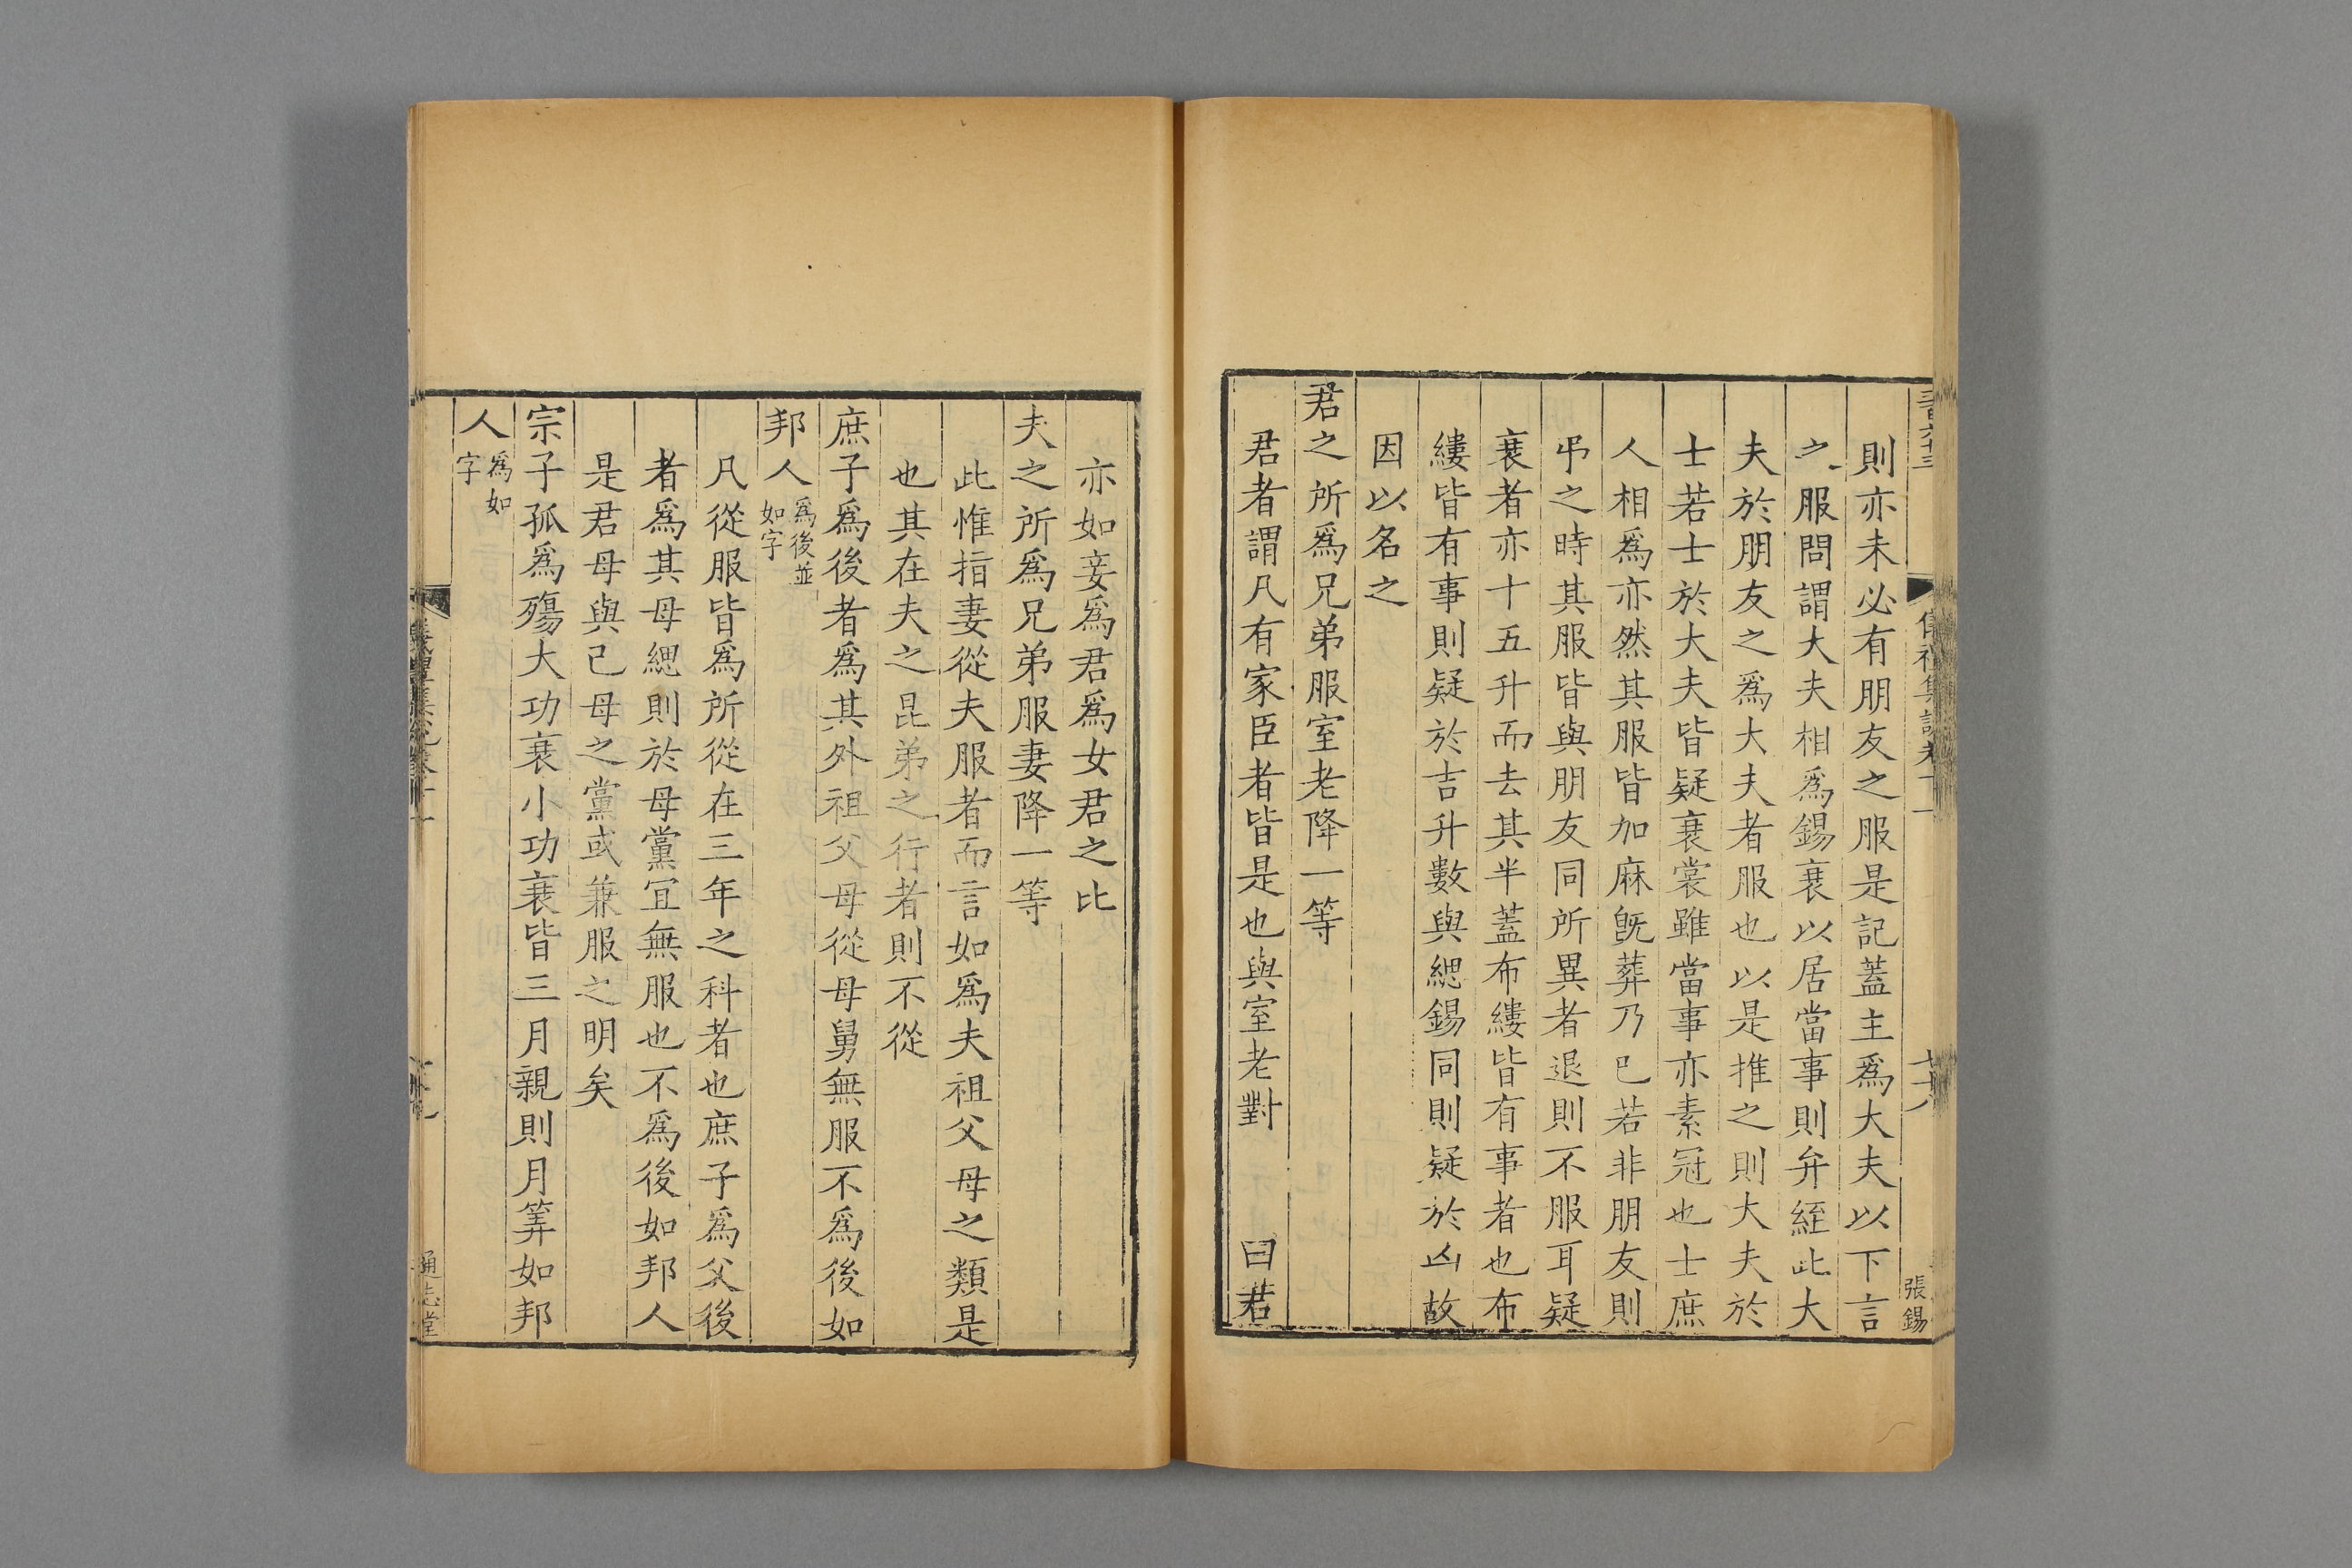 則亦未必有朋友之服是記蓋主爲大夫以下言
之服問謂大夫相爲錫衰以居當事則弁絰此大
夫於朋友之爲大夫者服也以是推之則大夫於
士若士於大夫皆疑衰裳雖當事亦素冠也士庶
人相爲亦然其服皆加麻旣葬乃已若非朋友則
弔之時其服皆與朋友同所異者退則不服耳疑
衰者亦十五升而去其半蓋布縷皆有事者也布
縷皆有事則疑於吉升數與緦錫同則疑於凶故
因以名之
君之所爲兄弟服室老降一等
君者謂凡有家臣者皆是也與室老對 曰君
亦如妾爲君爲女君之比
夫之所爲兄弟服妻降一等
此惟指妻從夫服者而言如爲夫祖父母之類是
也其在夫之昆弟之行者則不從
庶子爲後者爲其外祖父母從母舅無服不爲後如
邦人爲後並如字
凡從服皆爲所從在三年之科者也庶子爲父後
者爲其母緦則於母黨宜無服也不爲後如邦人
是君母與己母之黨或兼服之明矣
宗子孤爲殤大功衰小功衰皆三月親則月筭如邦
人爲如字
張錫
通志堂